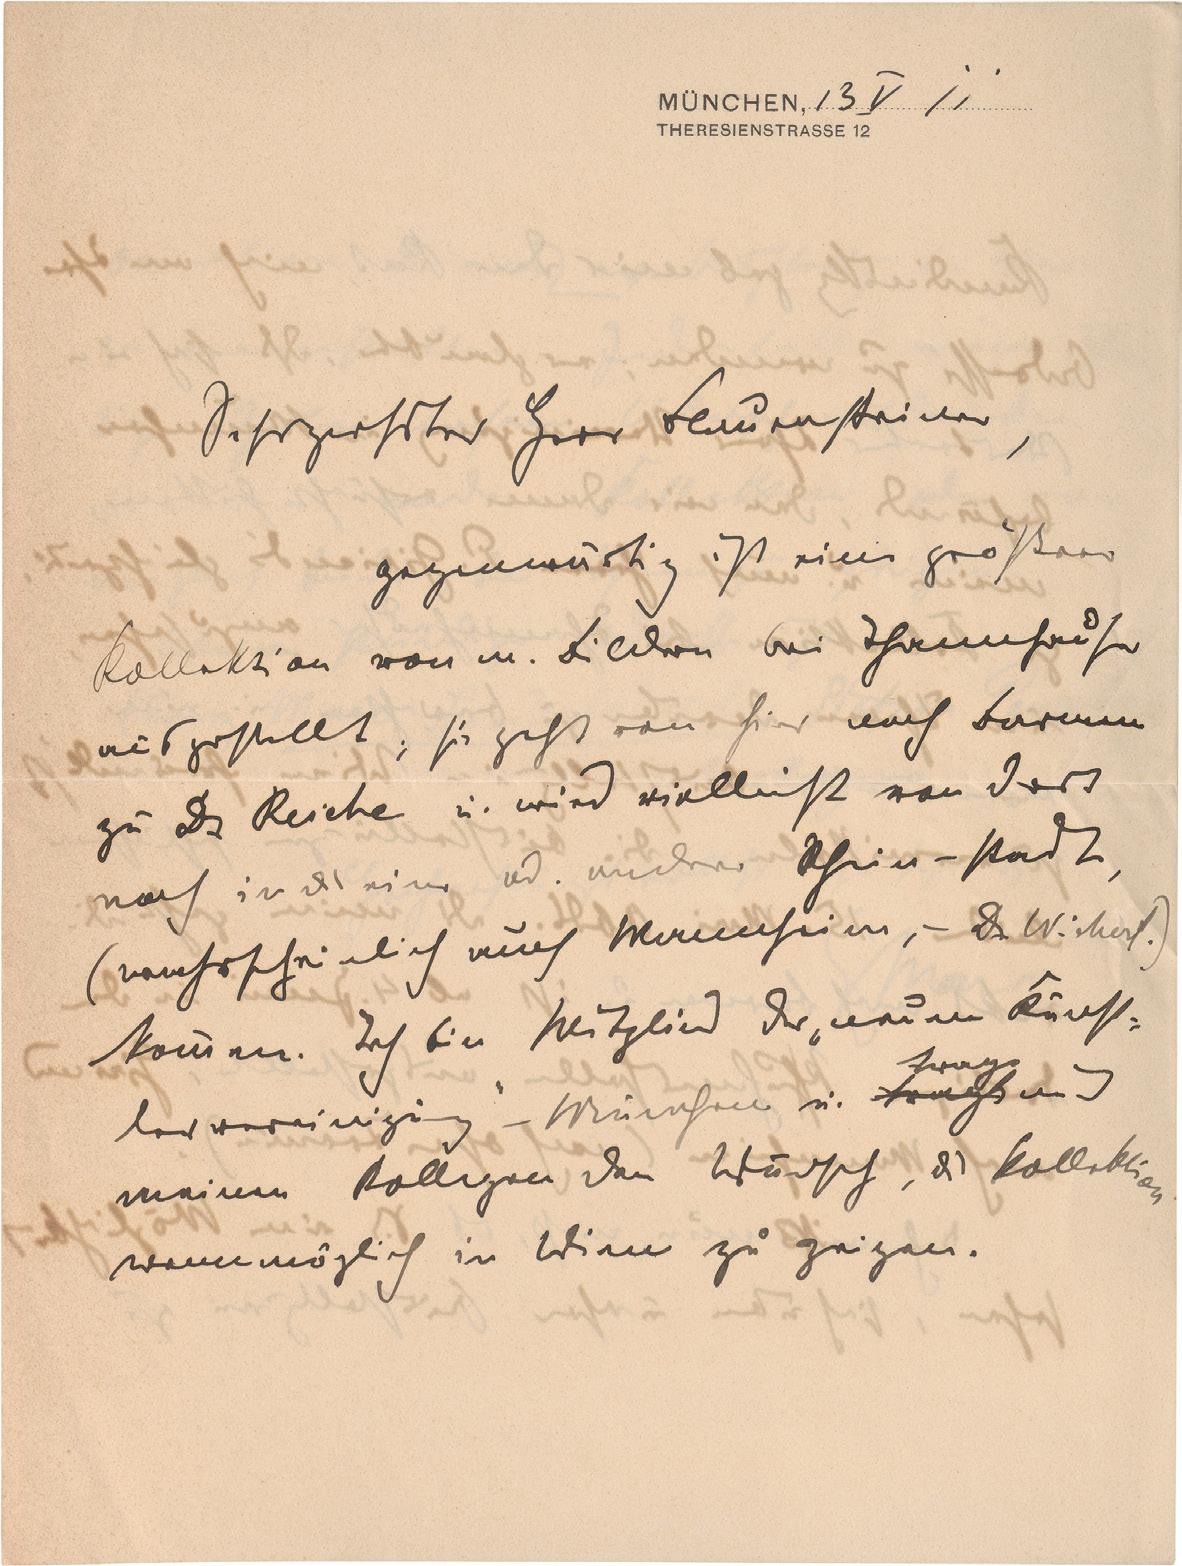 MÜNCHEN, 13 V 11
THERESIENSTRASSE 12
Sehrgeehrter Herr Blauensteiner,
gegenwärtig ist eine größere
Kollektion von m. Bildern bei Thannhauser
ausgestellt; sie geht von hier nach Barmen
zu Dr Reiche u. wird vielleicht von dort
noch in die eine od. andere Rhein-stadt,
(wahrscheinlich auch Mannheim, – Dr Wichert.)
kommen. Ich bin Mitglied der „neuen Künst-
lervereinigung" – München u. hege und
meinen Kollegen den Wunsch, die Kollektion
wennmöglich in Wien zu zeigen.